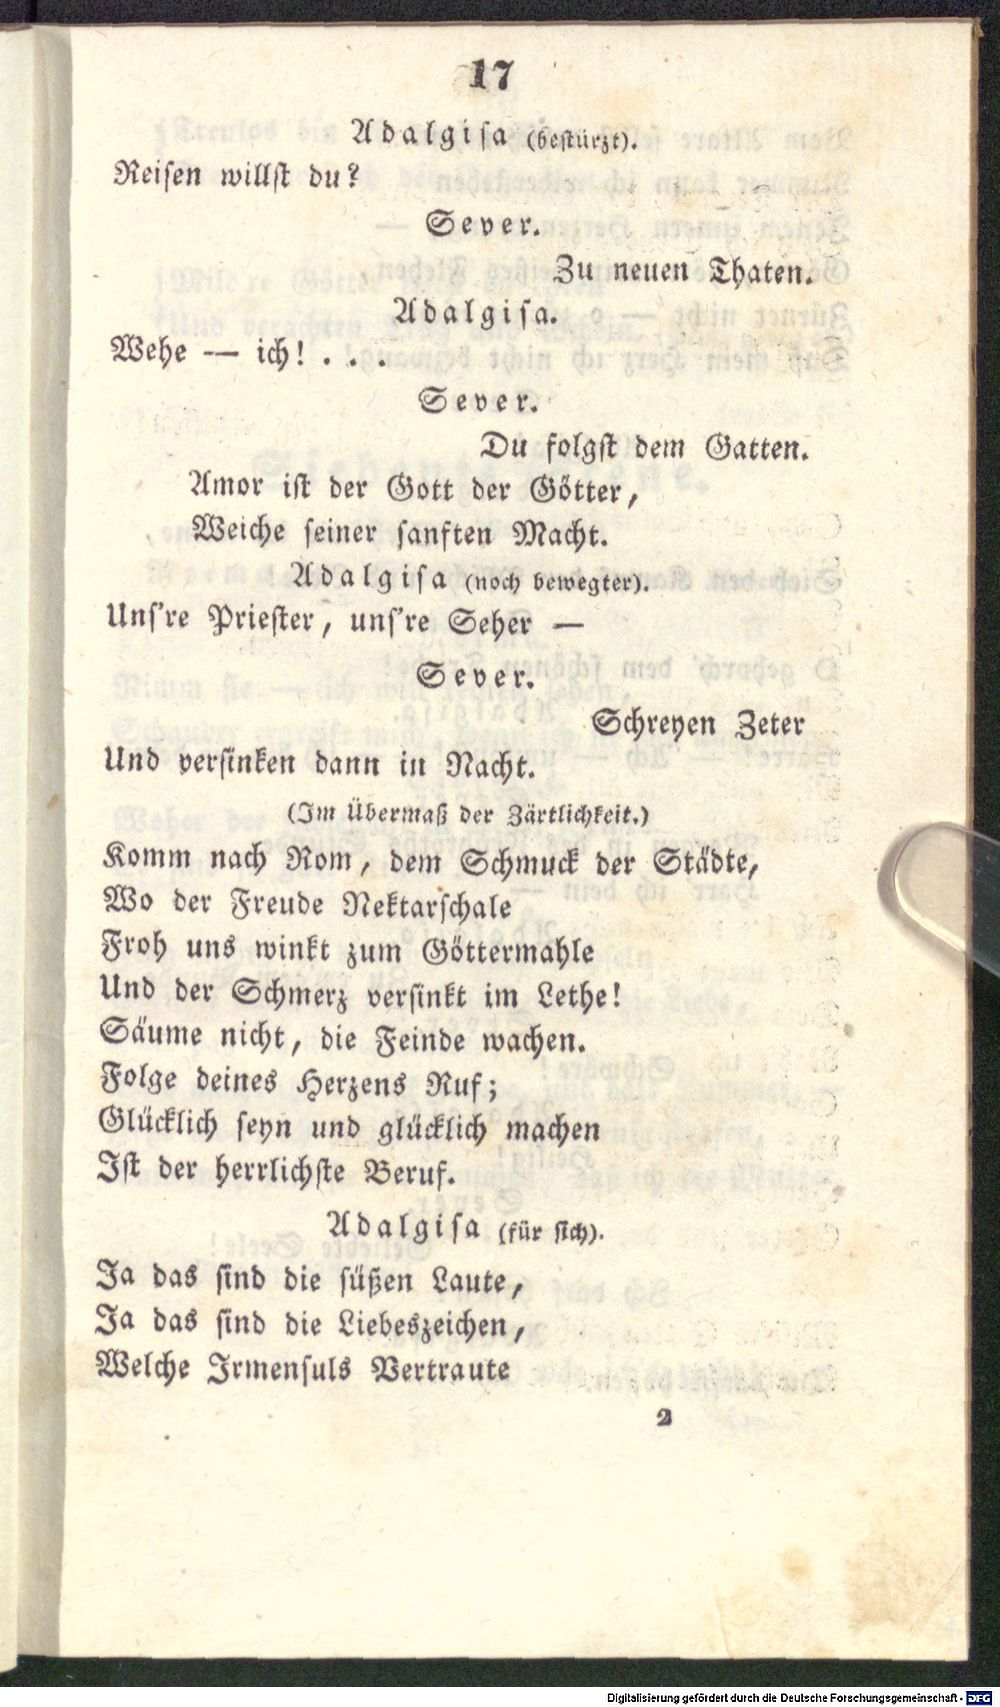 17
Adalgisa (bestürzt).
Reisen willst du?
Sever.
Zu neuen Thaten.
Adalgisa.
Wehe — ich! . . .
Sever.
Du folgst dem Gatten.
Amor ist der Gott der Götter,
Weiche seiner sanften Macht.
Adalgisa (noch bewegter).
Uns're Priester, uns're Seher —
Sever.
Schreyen Zeter
Und versinken dann in Nacht.
(Im Übermaß der Zärtlichkeit.)
Komm nach Rom, dem Schmuck der Städte,
Wo der Freude Nektarschale
Froh uns winkt zum Göttermahle
Und der Schmerz versinkt im Lethe!
Säume nicht, die Feinde wachen.
Folge deines Herzens Ruf;
Glücklich seyn und glücklich machen
Ist der herrlichste Beruf.
Adalgisa (für sich).
Ja das sind die süßen Laute,
Ja das sind die Liebeszeichen,
Welche Irmensuls Vertraute
2
Digitalisierung gefördert durch die Deutsche Forschungsgemeinschaft - DFG